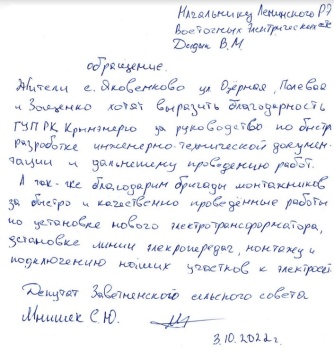 Начальнику Ленинского РЭ
Восточных Электрических
Дедык В.М
обращение.
Жители с. Яковенково ул Озёрная, Полевая
и Зощенко хотят выразить благодарность
ГУП РК Крымэнерго за руководство по быстр
разработке инженерно-технической докумен-
тации и дальнешему проведению работ.
А так-же благодарим бригады монтажников
за быстро и качественно проведённые работы
по установке нового электротрансформатора,
установке линии элекропередач, монтажу и
подключению наших участков к электросет
Депутат Заветненского сельского совета
Мнишек С.Ю.
3.10.2022 г.